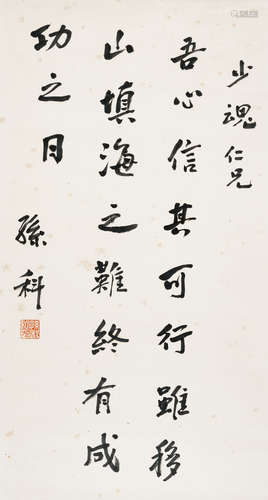 少魂仁兄
吾心信其可行雖移
山填海之難終有成
功之日
孫科